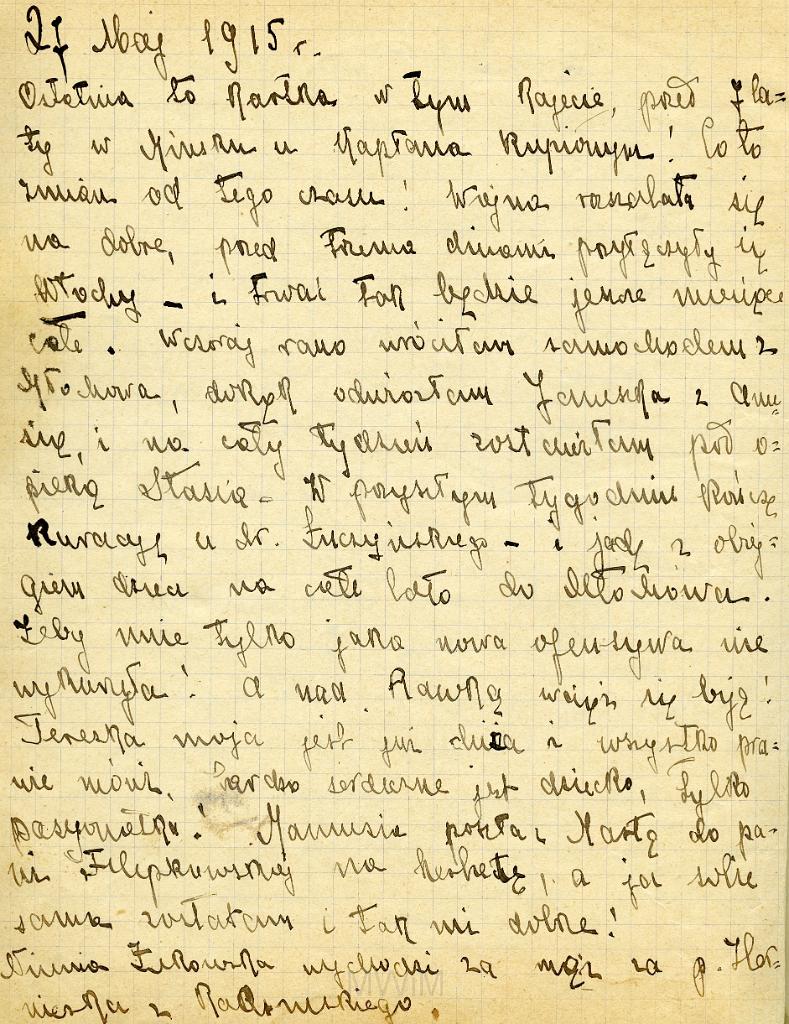 27 Maj 1915 r.
Ostatnia to kartka w tym kajecie, przed 7 la-
ty w Mińsku u Kapłana kupionym! Co to
zmian od tego czasu! Wojna rozszalała się
na dobre, przed trzema dniami przyłączyły się
Włochy – i trwać tak będzie jeszcze miesiące
całe. Wczoraj rano wróciłam samochodem z
Młochowa, dokąd odwiozłam Januszka z Anu-
sią, i na cały tydzień zostawiłam pod o-
pieką Stasia – W przyszłym tygodniu kończę
kurację u dr. Łuczyńskiego – i jadę z oboj-
giem dzieci na całe lato do Młochowa.
Żeby mnie tylko jaka nowa ofensywa nie
wykurzyła! A nad Rawką wciąż się biją!
Tereska moja jest już duża i wszystko pra-
wie mówi. Bardzo serdeczne jest dziecko, tylko
pasyonatka! Mamusia poszła z Martą do pa-
ni Filipkowskiej na herbatę, a ja sobie
sama zostałam i tak mi dobrze!
Niunia Żukowska wychodzi za mąż za p.
z Radomskiego.
MWIM